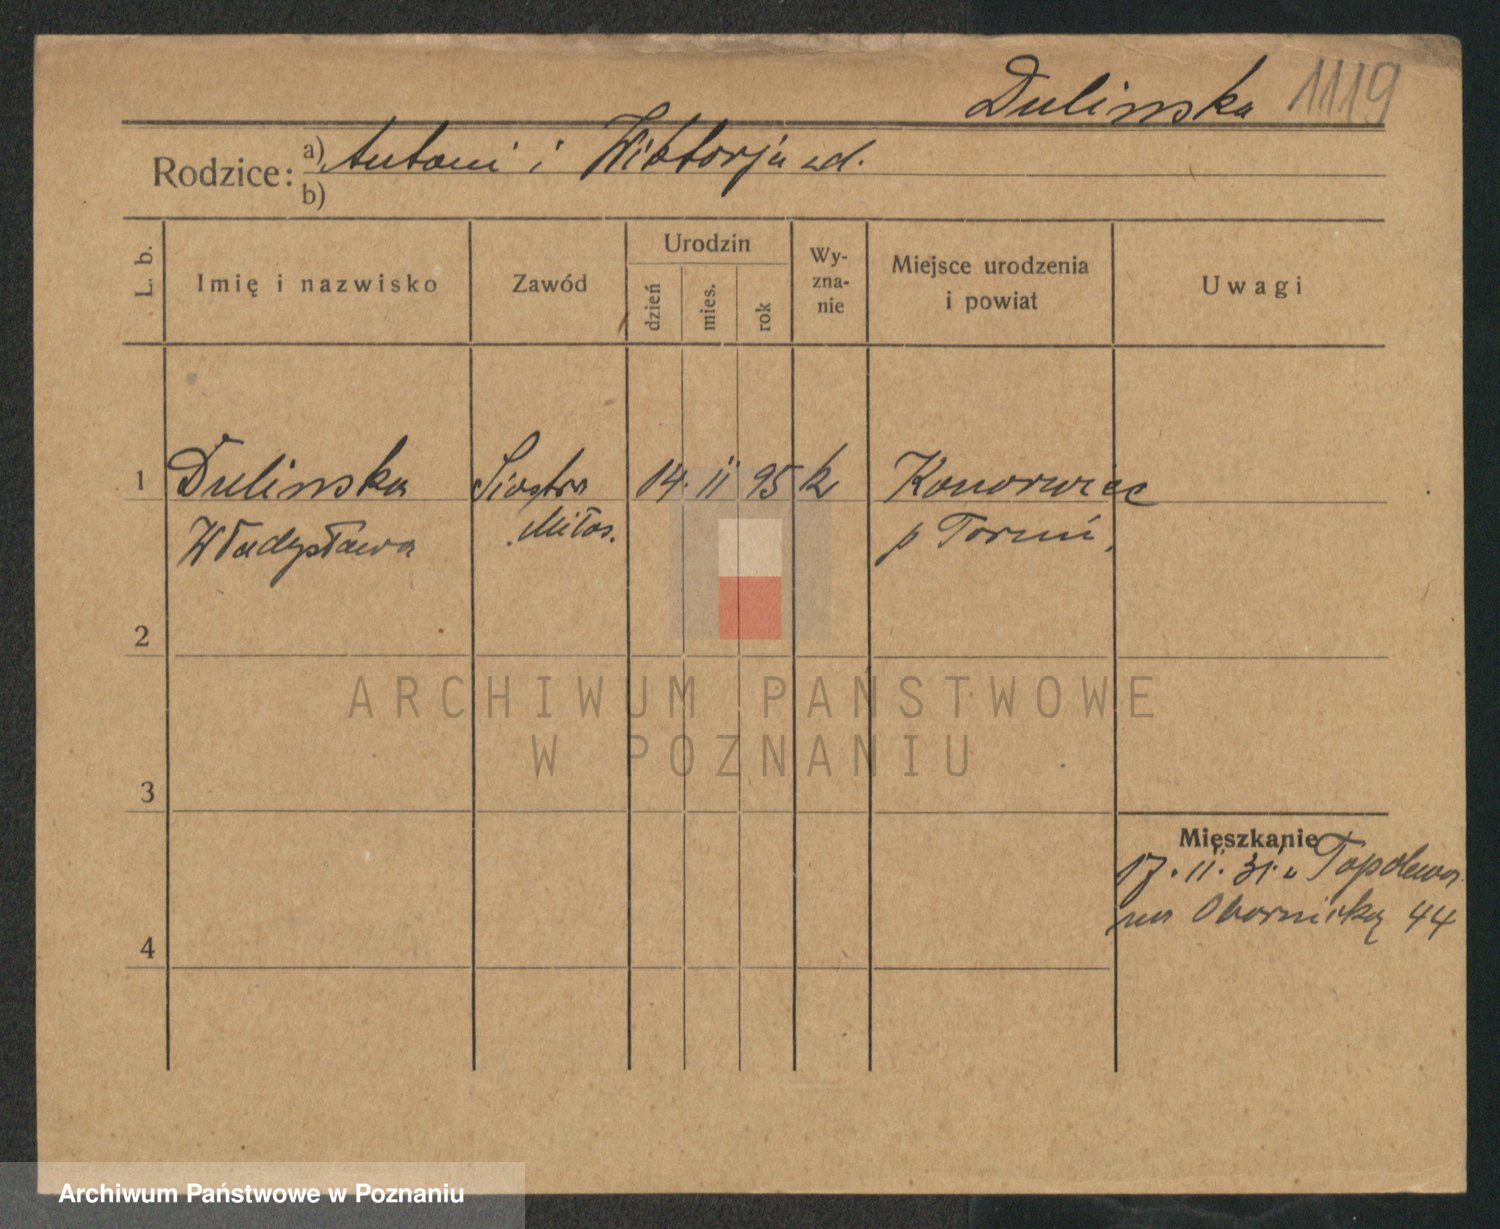 Dulinska 1119
Rodzice: a) Antoni i Wiktorja zd.
b)
L. b.
Imię i nazwisko
Zawód
Urodzin
dzień
mies.
rok
Wy-
zna-
nie
Miejsce urodzenia
i powiat
Uwagi
1 Dulinska Siostra 14. II 95 k Konorwiec
Władysława Miłos. p Toruń,
2
ARCHIWUM PAŃSTWOWE
W POZNANIU
3
Mieszkanie
17. II. 31. Topolewa
na Obornicką 44
4
Archiwum Państwowe w Poznaniu